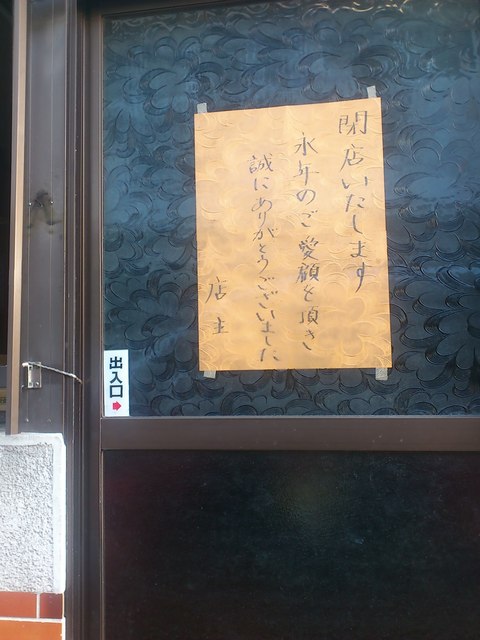 閉店いたします
永年のご愛顧を頂き
誠にありがとうございました
店主
出入口